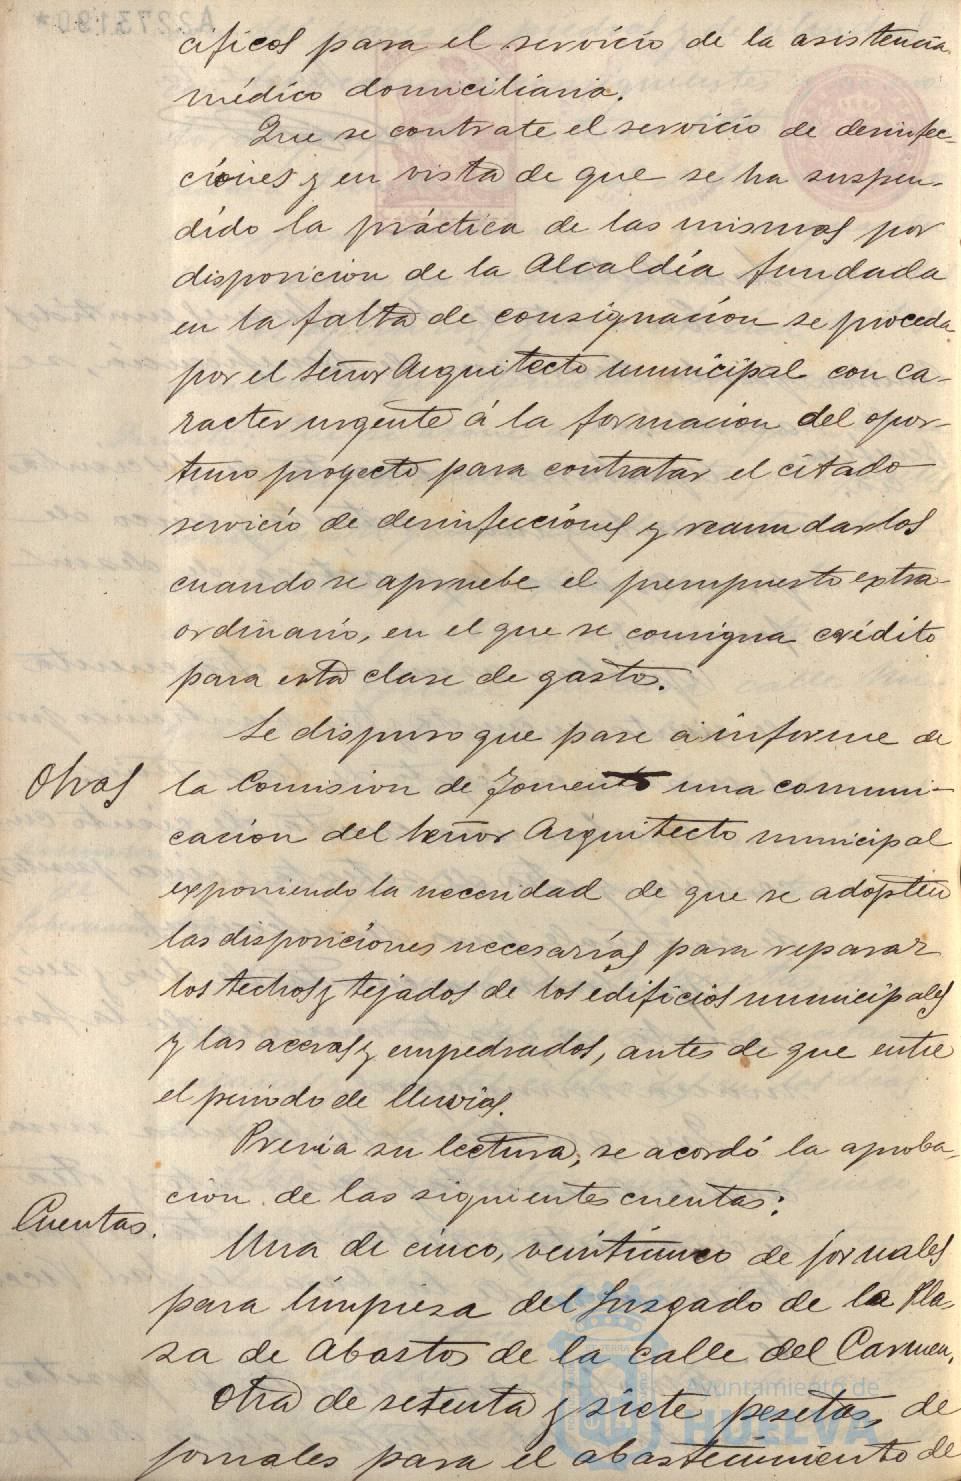 A2273190*
cificos para el servicio de la asistencia
médico domiciliaria.
Que se contrate el servicio de desinfec-
ciones y en vista de que se ha suspen-
dido la práctica de las mismas por
disposicion de la Alcaldía fundada
en la falta de consignacion se proceda
por el Señor Arquitecto municipal con ca-
racter urgente á la formacion del opor-
tuno proyecto para contratar el citado
servicio de desinfecciones y reanudarlos
cuando se apruebe el presupuesto extra-
ordinario, en el que se consigna crédito
para esta clase de gastos.
Se dispuso que pase á informe de
Otras
la Comision de Fomento una comuni-
cacion del Señor Arquitecto municipal
exponiendo la necesidad de que se adopten
las disposiciones necesarias para reparar
los techos y tejados de los edificios municipales
y las aceras y empedrados, antes de que entre
el periodo de lluvias.
Previa su lectura, se acordó la aproba-
cion de las siguientes cuentas:
Cuentas.
Una de cinco, veinticinco de jornales
para limpieza del Juzgado de la Pla-
za de Abastos de la calle del Carmen.
Otra de setenta y siete pesetas, de
jornales para el abastecimiento de
Ayuntamiento de
HUELVA